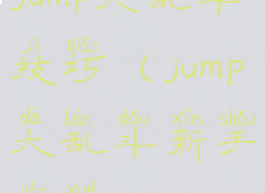 jump大乱斗
jì qiǎo
技巧（jump
dà luàn dòu xīn shǒu
大乱斗新手